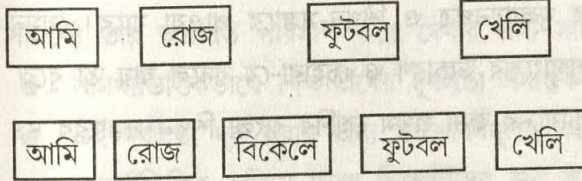 আমি রোজ ফুটবল খেলি
আমি রোজ বিকেলে ফুটবল খেলি